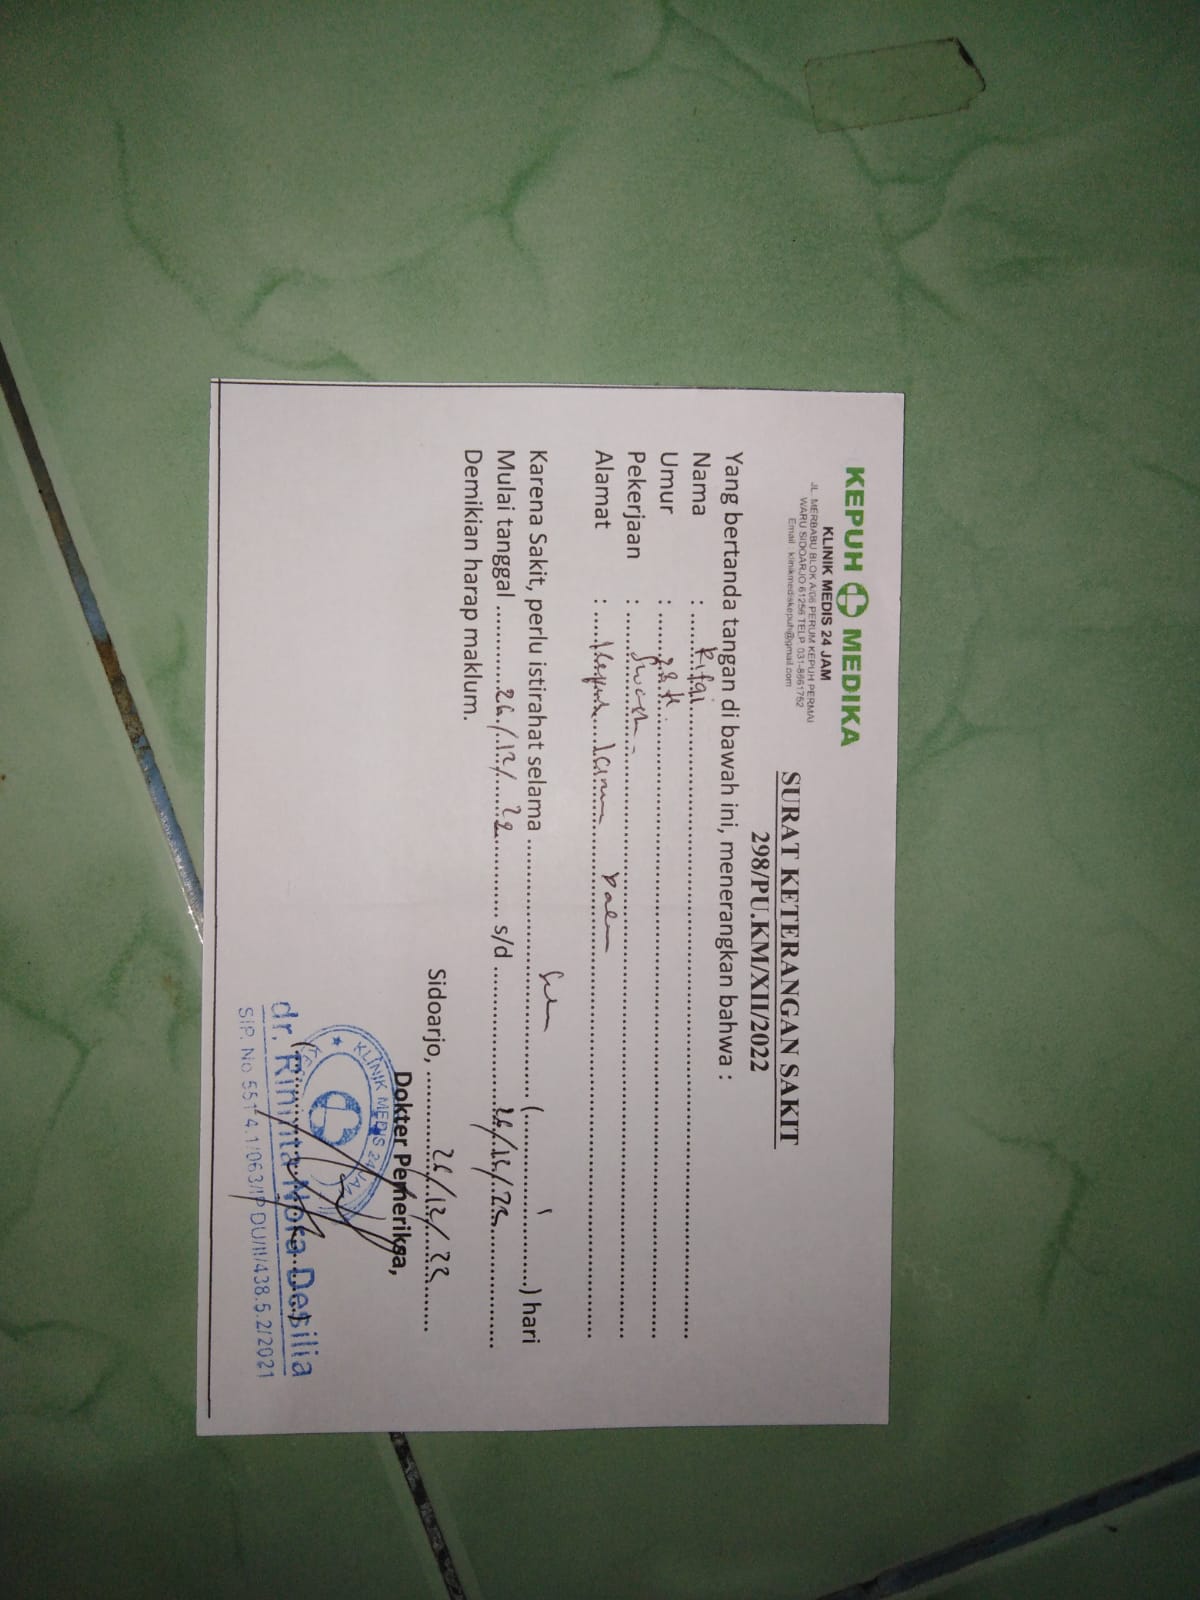 KEPUH MEDIKA
KLINIK MEDIS 24 JAM
JL. MERBABU BLOK A/08 PERUM KEPUH PERMAI
WARU SIDOARJO 61256 TELP. 031-8661752
Email : klinikmediskepuh@gmail.com
SURAT KETERANGAN SAKIT
298/PU.KM/XII/2022
Yang bertanda tangan di bawah ini, menerangkan bahwa :
Nama : Rifqi
Umur :
Pekerjaan : Swasta
Alamat :
Karena Sakit, perlu istirahat selama ( 1 ) hari
Mulai tanggal 26/12/22 s/d 26/12/22
Demikian harap maklum.
Sidoarjo, 26/12/22
Dokter Pemeriksa,
KLINIK MEDIS 24 JAM
dr. Rininta Nora Desilia
SIP. No 551.4.1/063/IP.DU/II/438.5.2/2021